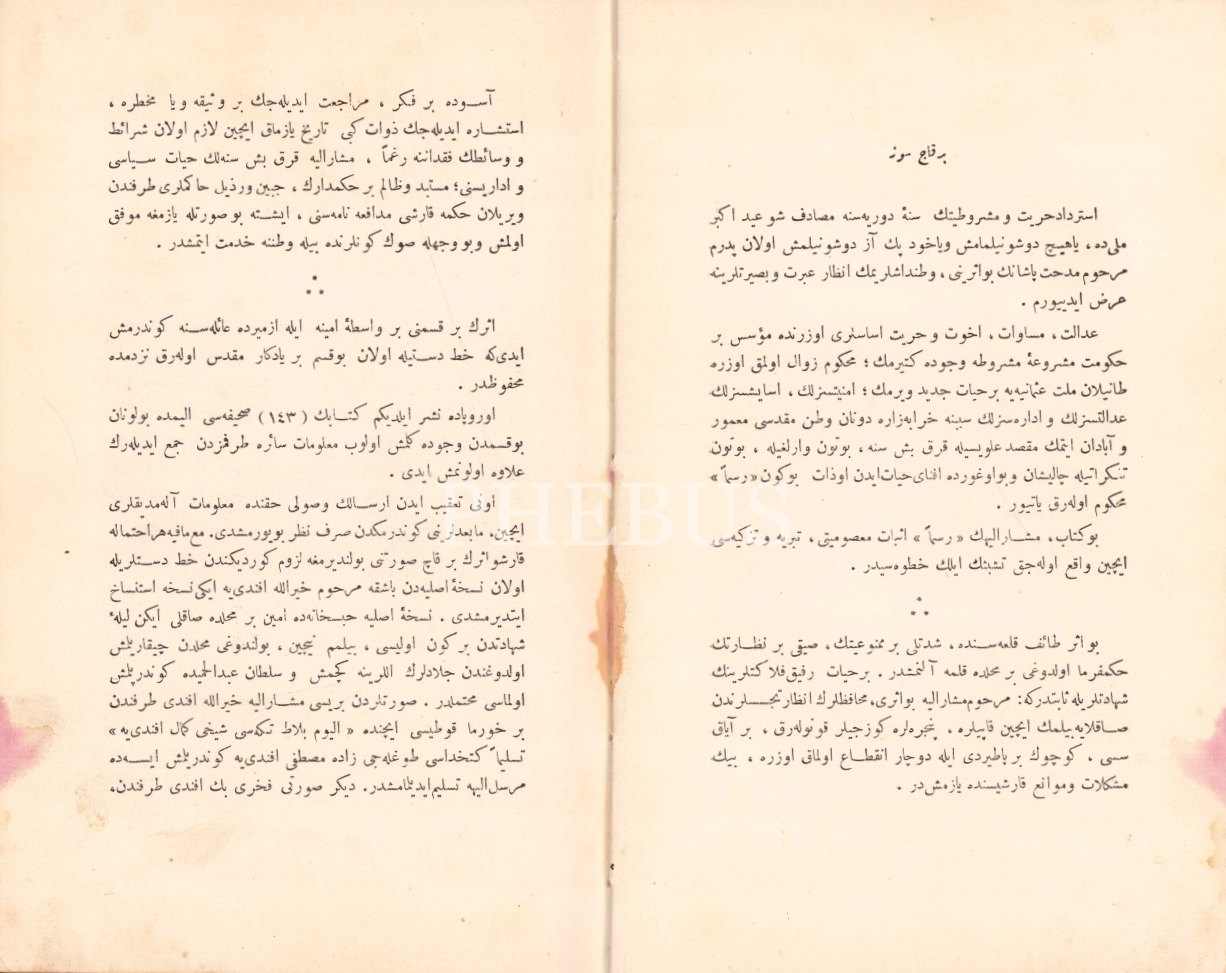 بر قاچ سوز
استرداد حریت و مشروطیتك سنۀ دوریه‌سنه مصادف شو عید اكبر
ملی‌ده ، یاهیچ دوشونیلمامش ویاخود پك آز دوشونیلمش اولان پدرم
مرحوم مدحت پاشانك بو اثرینی ، وطنداشلریمك انظار عبرت و بصیرتلرینه
عرض ایدییورم .
عدالت ، مساوات ، اخوت و حریت اساسلری اوزرنده مؤسس بر
حكومت مشروعۀ مشروطه وجوده كتیرمك ؛ محكوم زوال اولمق اوزره
طانیلان ملت عثمانیه‌یه بر حیات جدید ویرمك ؛ امنیتسزلك ، اسایشسزلك
عدالتسزلك و اداره‌سزلك سببنه خرابه‌زاره دونان وطن مقدسی معمور
و آبادان ایتمك مقصد علویسیله قرق بش سنه ، بوتون وارلغیله ، بوتون
تفكراتیله چالیشان و بو اوغورده افنای حیات ایدن او ذات بوكون « رسماً »
محكوم اوله‌رق یاتیور .
بو كتاب ، مشارالیهك « رسماً » اثبات معصومیتی ، تبریه و تزكیه‌سی
ایچین واقع اوله‌جق تشبثك ایلك خطوه‌سیدر .
* * *
بو اثر طائف قلعه‌سنده ، شدتلی بر ممنوعیتك ، صیقی بر نظارتك
حكمفرما اولدوغی بر محلده قلمه آلنمشدر . برحیات رفیق فلاكتلرینك
شهادتلریله ثابتدركه : مرحوم مشارالیه بو اثری ، محافظلرك انظار تجسسلرندن
صاقلایه‌بیلمك ایچین قاپیلره ، پنجره‌لره كوزجیلر قونوله‌رق ، بر آیاق
سسی ، كوچوك بر پاطیردی ایله دوچار انقطاع اولماق اوزره ، بیك
مشكلات و موانع قارشیسنده یازمشدر .
آسوده بر فكر ، مراجعت ایدیله‌جك بر وثیقه ویا مخطره ،
استشاره ایدیله‌جك ذوات كبی تاریخ یازماق ایچین لازم اولان شرائط
و وسائطك فقداننه رغماً ، مشارالیه قرق بش سنه‌لك حیات سیاسی
و اداریسنی ؛ مستبد و ظالم بر حكمدارك ، جبین و رذیل حاكملری طرفندن
ویریلان حكمه قارشی مدافعه نامه‌سنی ، ایشته بو صورتله یازمغه موفق
اولمش و بو وجهله صوك كونلرنده بیله وطننه خدمت ایتمشدر .
* * *
اثرك بر قسمنی بر واسطۀ امینه ایله ازمیرده عائله‌سنه كوندرمش
ایدی‌كه خط دستیله اولان بوقسم بر یادكار مقدس اوله‌رق نزدمده
محفوظدر .
اوروپاده نشر ایلدیكم كتابك ( ١٤٣ ) صحیفه‌سی الیمده بولونان
بوقسمدن وجوده كلمش اولوب معلومات سائره طرفمزدن جمع ایدیله‌رك
علاوه اولونمش ایدی .
اونی تعقیب ایدن ارسالك وصولی حقنده معلومات آله‌مدیقلری
ایچین ، مابعدلرینی كوندرمكدن صرف نظر بویورمشدی . مع‌مافیه هر احتماله
قارشو اثرك بر قاچ صورتنی بولندیرمغه لزوم كوردیكندن خط دستلریله
اولان نسخۀ اصلیه‌دن باشقه مرحوم خیرالله افندی‌یه ایكی نسخه استنساخ
ایتدیرمشدی . نسخۀ اصلیه حبسخانه‌ده امین بر محلده صاقلی ایكن لیلۀ
شهادتدن بر كون اولیسی ، بیلمم نیچین ، بولندوغی محلدن چیقاریلمش
اولدوغندن جلادلرك اللرینه كچمش و سلطان عبدالحمیده كوندریلمش
اولماسی محتملدر . صورتلردن بریسی مشارالیه خیرالله افندی طرفندن
بر خورما قوطیسی ایچنده « الیوم بلاط تكه‌سی شیخی كمال افندی‌یه »
تسلیماً كتخداسی طوغله‌جی زاده مصطفی افندی‌یه كوندریلمش ایسه‌ده
مرسل الیهه تسلیم ایدیلمامشدر . دیكر صورتی فخری بك افندی طرفندن،
PHEBUS